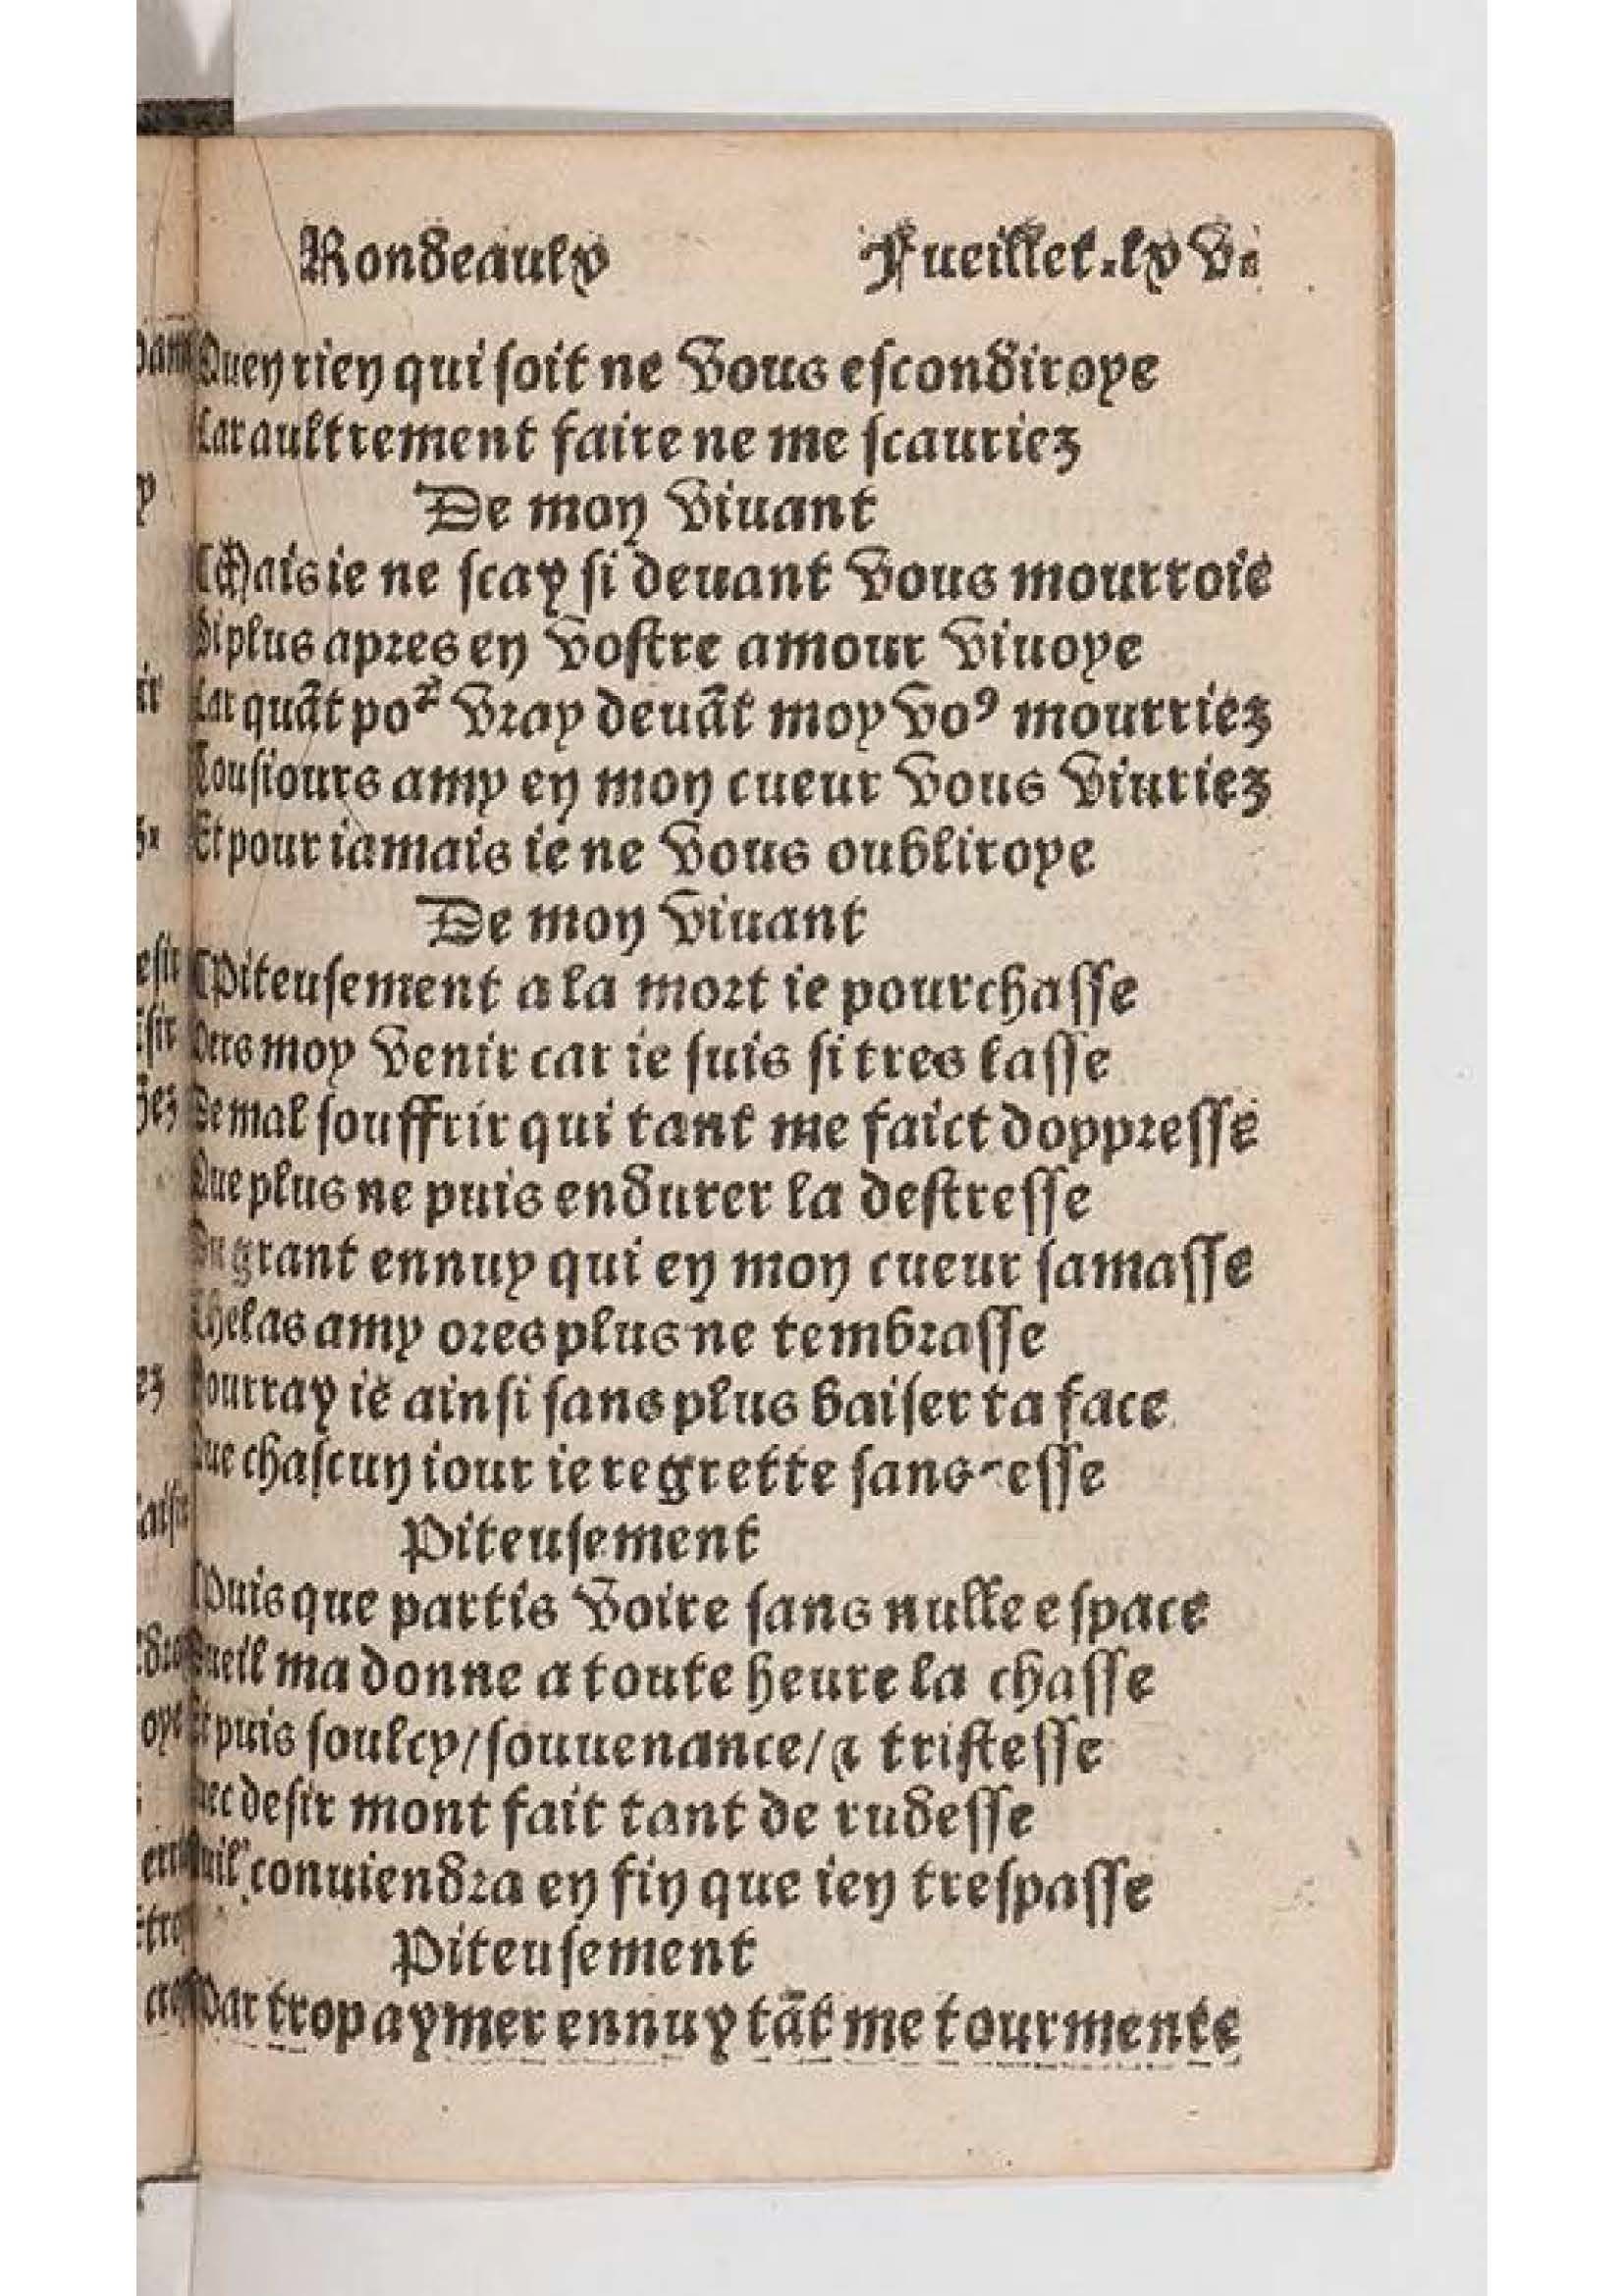 Rondeaulx Fueillet.lxvi.
Quen rien qui soit ne vous escondiroye
Car aultrement faire ne me scauriez
De mon viuant
Mais ie ne scay si deuant vous mourroie
Si plus apres en vostre amour viuoye
Car quãt poᷣ vray deuãt moy voꝰ mourriez
Tousiours amy en mon cueur vous viuriez
Et pour iamais ie ne vous oubliroye
De mon viuant
Piteusement a la mort ie pourchasse
Vers moy venir car ie suis si tres lasse
De mal souffrir qui tant me faict doppresse
Que plus ne puis endurer la destresse
Du grant ennuy qui en mon cueur samasse
Chelas amy ores plus ne tembrasse
Pourray ie ainsi sans plus baiser ta face
Que chascun iour ie regrette sans cesse
Piteusement
Puis que partis voire sans nulle espace
Dueil ma donne a toute heure la chasse
Et puis soulcy/souuenance/⁊ tristesse
Auec desir mont fait tant de rudesse
Quil conuiendra en fin que ien trespasse
Piteusement
Par trop aymer ennuy tãt me tourmente